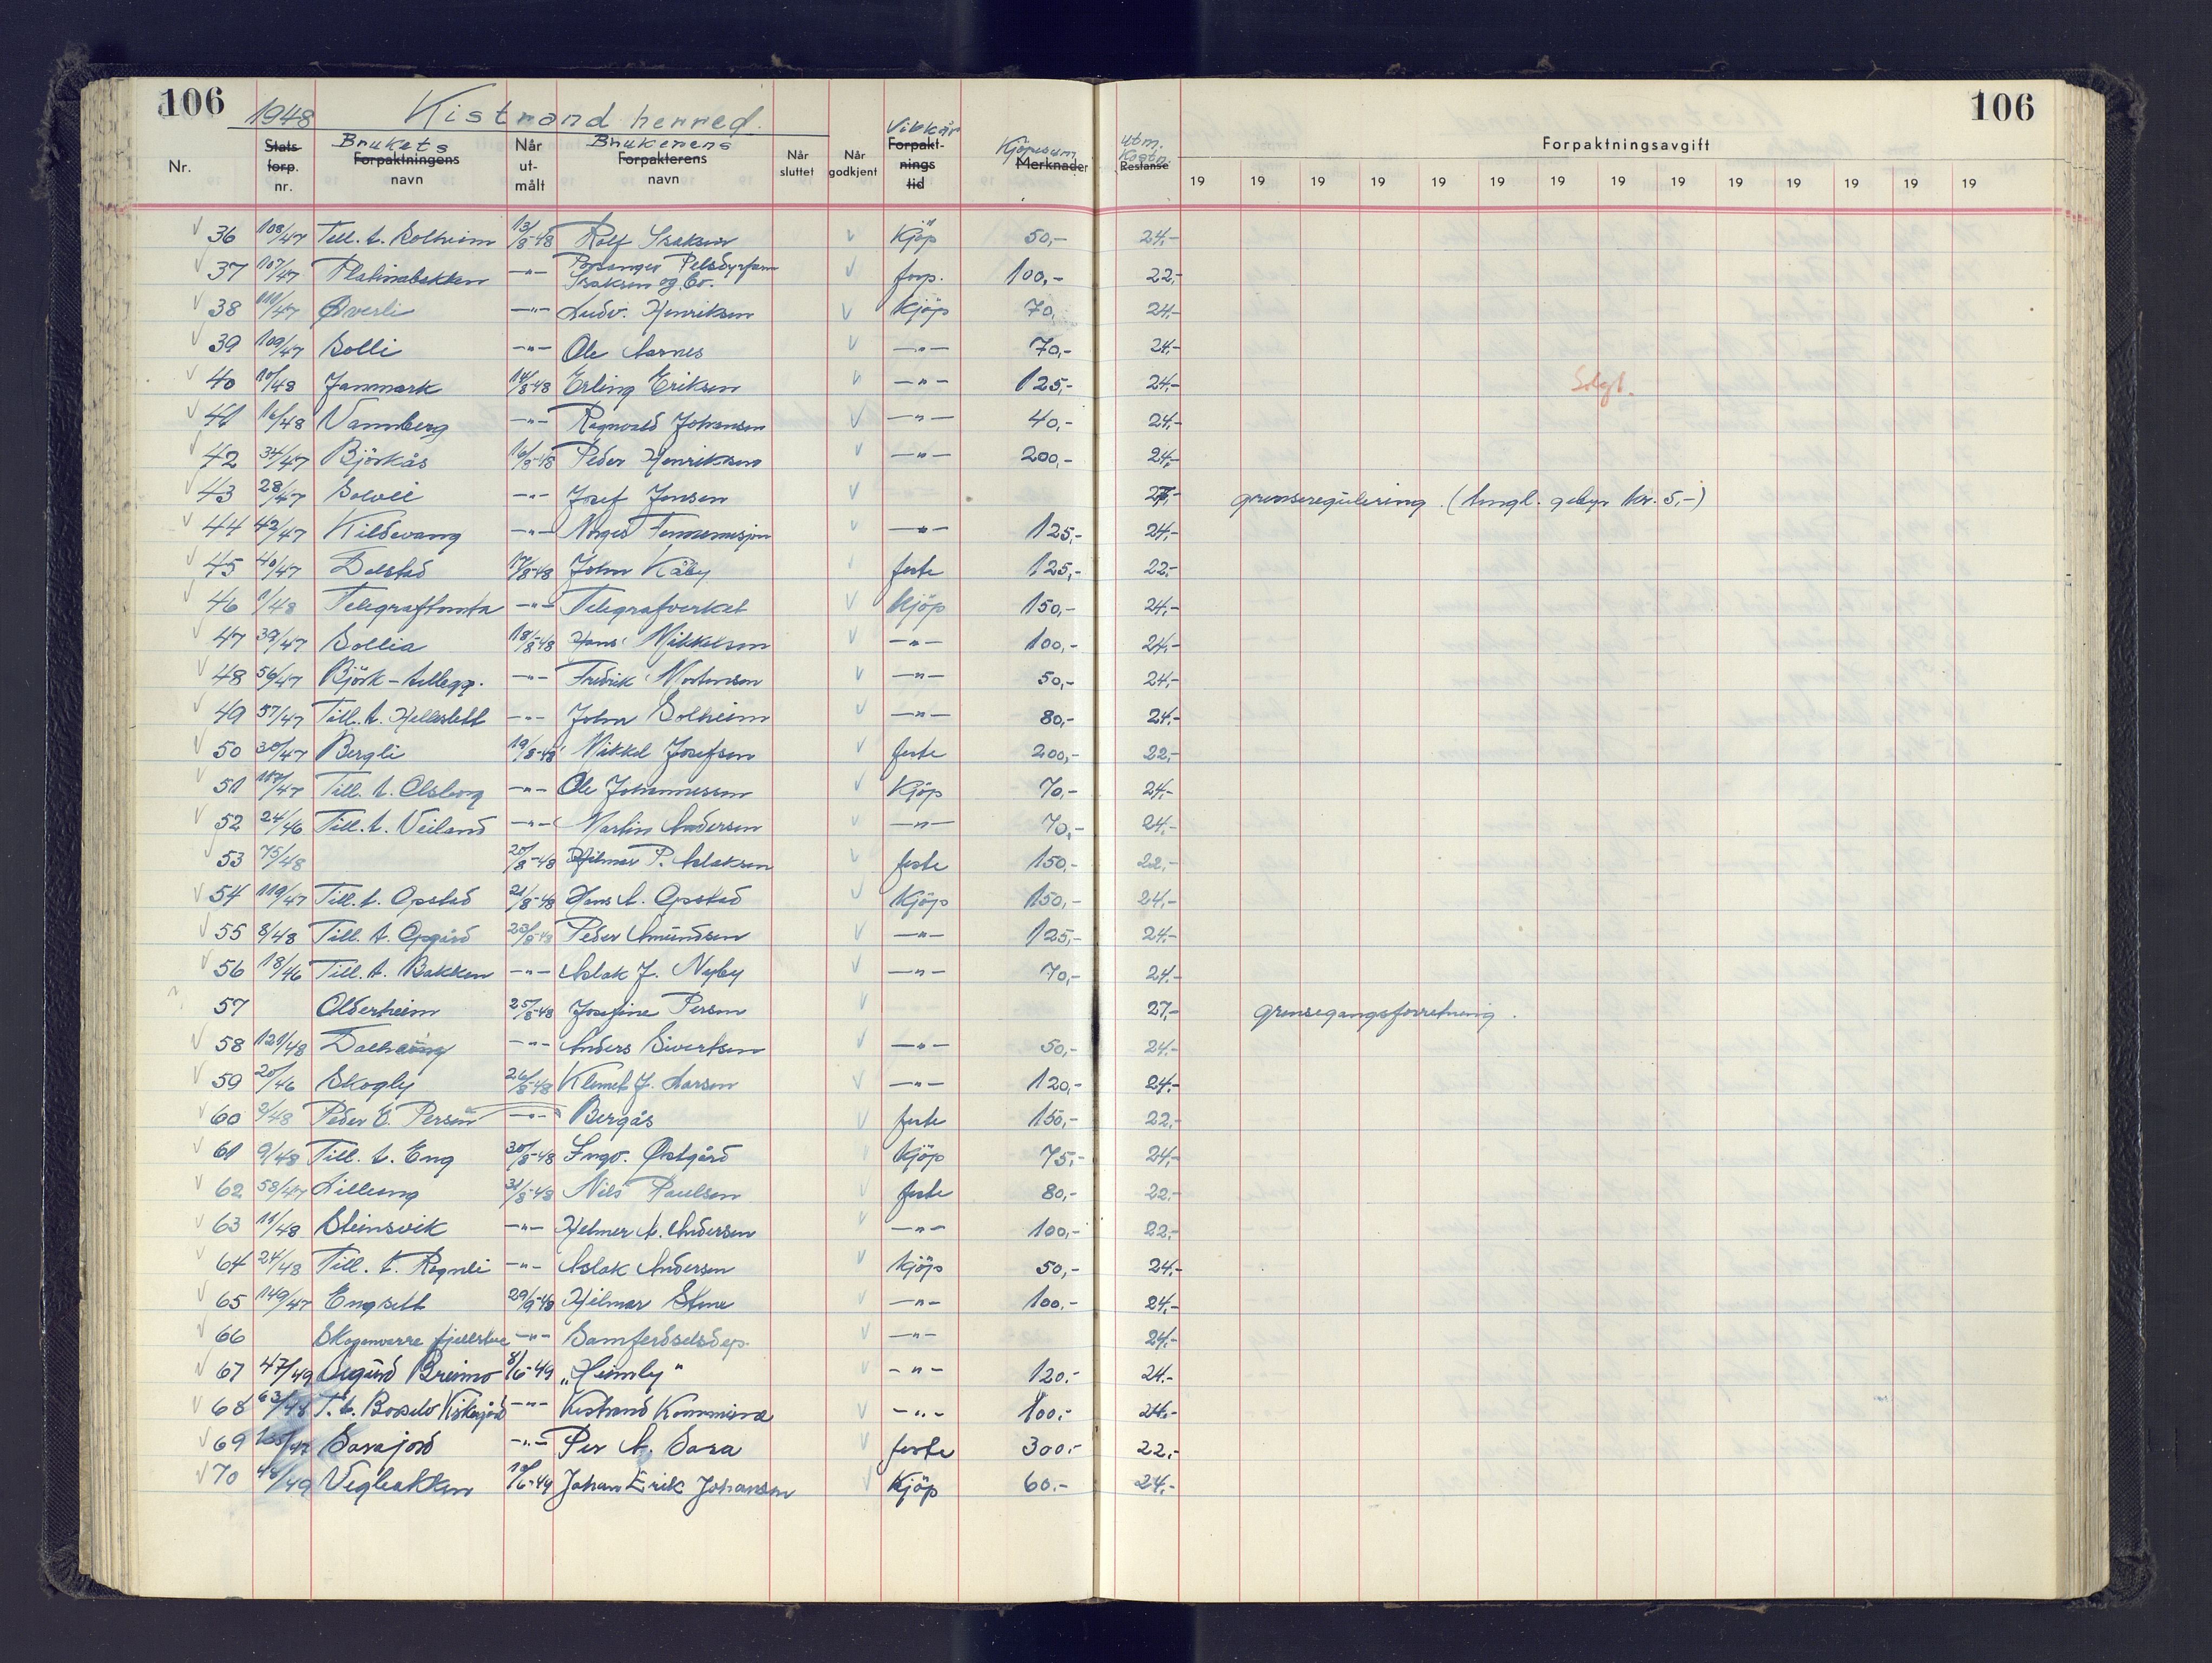 106
106
1948 Kistrand herred.
Nr. Stats forp. nr. Brukets Forpaktningens navn Når ut-målt Brukerens Forpakterens navn Når sluttet Når godkjent Vilkår Forpakt-nings tid Kjöpesum Merknader Utm. Kostn. Restanse Forpaktningsavgift
19 19 19 19 19 19 19 19 19 19 19 19 19 19
√ 36 108/47 Till. t. Solheim 13/8-48 Rolf Isaksen √ Kjöp 50,- 24,-
√ 37 107/47 Platinabakken -"- Porsanger Pelsdyrfarm Isaksen og Co. √ forp. 100,- 22,-
√ 38 111/47 Øverli -"- Ludv. Henriksen √ Kjöp 70, 24,-
√ 39 109/47 Solli -"- Ole Aarnes √ -"- 70,- 24,-
√ 40 10/48 Janmark 14/8-48 Erling Eriksen √ -"- 125,- 24,-
√ 41 16/48 Vannberg -"- Ragnvald Johansen √ -"- 40,- 24,-
√ 42 34/47 Björkås 16/8-48 Peder Henriksen √ -"- 200,- 24,-
√ 43 28/47 Solvei -"- Josef Jensen √ grenseregulering. (tingl. gebyr kr. 5,-)
√ 44 42/47 Kildevang -"- Norges Finnemisjon √ -"- 125,- 24,-
√ 45 40/47 Dalstad 17/8-48 John Käby √ feste 125,- 22,-
√ 46 1/48 Telegraftomta -"- Telegrafverket √ Kjöp 150,- 24,-
√ 47 39/47 Sollia 18/8-48 Hans Mikkelsen √ -"- 100,- 24,-
√ 48 56/47 Björk-tillegg. -"- Fredrik Mortensen √ -"- 50,- 24,-
√ 49 57/47 Till. t. Helleslett -"- John Solheim √ -"- 80,- 24,-
√ 50 30/47 Bergli 19/8-48 Mikkel Josefsen √ feste 200,- 22,-
√ 51 117/47 Till. t. Olsborg -"- Ole Johannessen √ Kjöp 70,- 24,-
√ 52 24/46 Till. t. Veiland -"- Martin Andersen √ -"- 70,- 24,-
√ 53 75/48 20/8-48 Hilmar P. Aslaksen √ feste 150,- 22,-
√ 54 119/47 Till. t. Opstad 21/8-48 Hans A. Opstad √ Kjöp 150,- 24,-
√ 55 8/48 Till. t. Opgård 23/8-48 Peder Amundsen √ -"- 125,- 24,-
√ 56 18/46 Till. t. Bakken -"- Aslak J. Nyby √ -"- 70,- 24,-
57 Olderheim 25/8-48 Josefine Persen √ 27,- grensegangsforretning.
√ 58 121/48 -"- Anders Sivertsen √ -"- 50,- 24,-
√ 59 20/46 Skogly 26/8-48 Klemet J. Larsen √ -"- 120,- 24,-
√ 60 2/48 Peder E. Persen -"- Bergås √ feste 150,- 22,-
√ 61 9/48 Till. t. Eng 30/8-48 Ingv. Østgård √ Kjöp 75,- 24,-
√ 62 58/47 Lilleeng 31/8-48 Nils Paulsen √ feste 80,- 22,-
√ 63 11/48 Steinsvik -"- Helmer A. Andersen √ -"- 100,- 22,-
√ 64 24/48 Till. t. Rognli -"- Aslak Andersen √ Kjöp 50,- 24,-
√ 65 149/47 Engsett 29/9-48 Hilmar Stene √ -"- 100,- 24,-
√ 66 Skoganvarre fjellstue -"- Samferdselsdep. √ -"- 24,-
√ 67 47/49 Sigurd Breimo 8/6-49 "Heimly" √ -"- 120.- 24.-
√ 68 63/48 T. t. Börselv -"- Kistrand Kommune √ -"- 100.- 24.-
√ 69 Sarajord -"- Per A. Sara √ feste 300.- 22.-
√ 70 48/49 Vegbakken 10/6-49 Johan Erik Johansen √ Kjöp 60.- 24.-